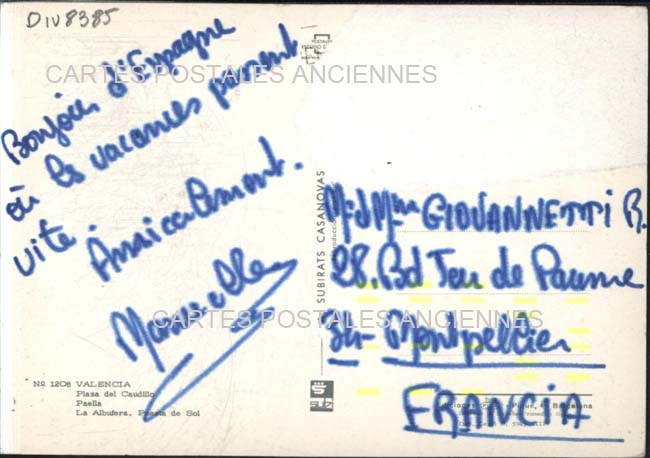 DIV8385
CARTES POSTALES ANCIENNES
Bonjour d'Espagne
où les vacances passent
vite.
Amicalement.
M. d Mme GIOVANNETTI R.
28. Bd Jeu de Paume
34 - Montpellier
FRANCIA
SUBIRATS CASANOVAS
CARTES POSTALES ANCIENNES
Nº 1208 VALENCIA
Plaza del Caudillo
Paella
La Albufera. Puesta de Sol